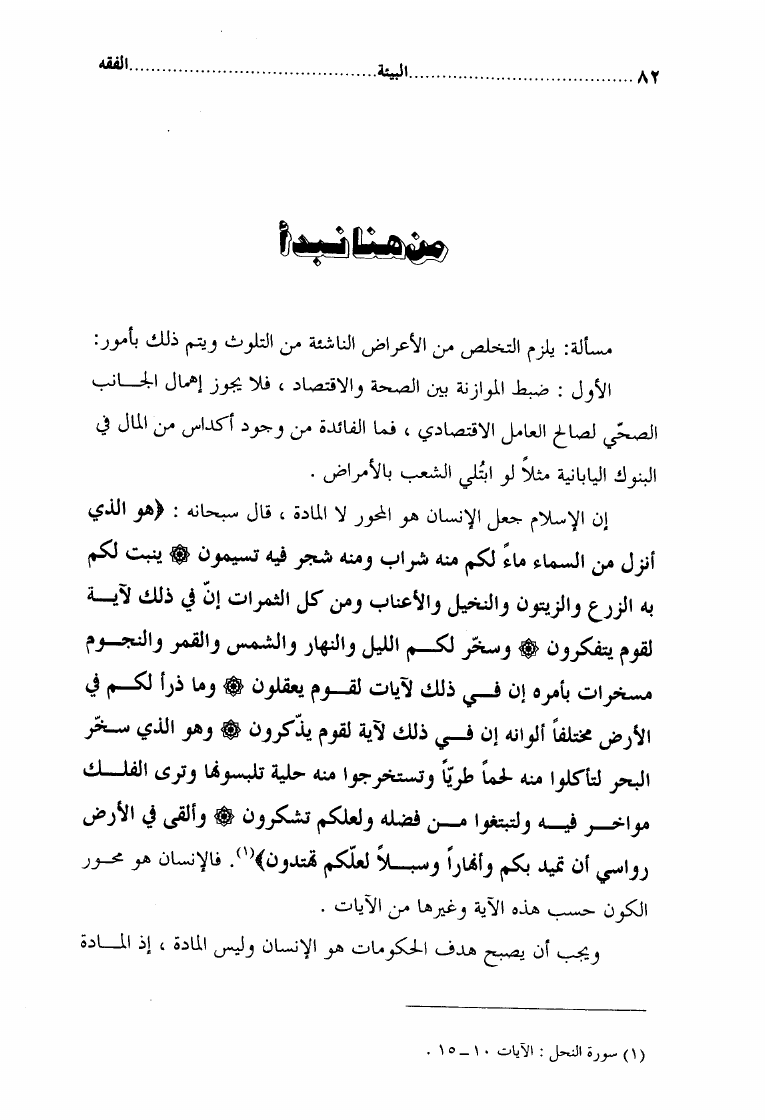 ٨٢........................................البيئة.............................................الفقه
من هنا نبدأ
مسألة: يلزم التخلص من الأعراض الناشئة من التلوث ويتم ذلك بأمور:
الأول : ضبط الموازنة بين الصحة والاقتصاد ، فلا يجوز إهمال الجانب
الصحّي لصالح العامل الاقتصادي ، فما الفائدة من وجود أكداس من المال في
البنوك اليابانية مثلاً لو ابتُلي الشعب بالأمراض .
إن الإسلام جعل الإنسان هو المحور لا المادة ، قال سبحانه : ﴿هو الذي
أنزل من السماء ماءً لكم منه شراب ومنه شجر فيه تسيمون ۞ ينبت لكم
به الزرع والزيتون والنخيل والأعناب ومن كل الثمرات إنّ في ذلك لآيـــة
لقوم يتفكرون ۞ وسخّر لكـــم الليل والنهار والشمس والقمر والنجـوم
مسخرات بأمره إن فـــي ذلك لآيات لقـــوم يعقلون ۞ وما ذرأ لكـــم في
الأرض مختلفاً ألوانه إن فـــي ذلك لآية لقوم يذّكرون ۞ وهو الذي سـخّر
البحر لتأكلوا منه لحماً طريّاً وتستخرجوا منه حلية تلبسونها وترى الفلـــك
مواخـــر فيـــه ولتبتغوا مـــن فضله ولعلكم تشكرون ۞ وألقى في الأرض
رواسي أن تميد بكم وأنهاراً وسبـــلاً لعلّكم تهتدون﴾(١). فالإنسان هو محـور
الكون حسب هذه الآية وغيرها من الآيات .
ويجب أن يصبح هدف الحكومات هو الإنسان وليس المادة ، إذ المـــادة
(١) سورة النحل : الآيات ١٠ ــ ١٥ .